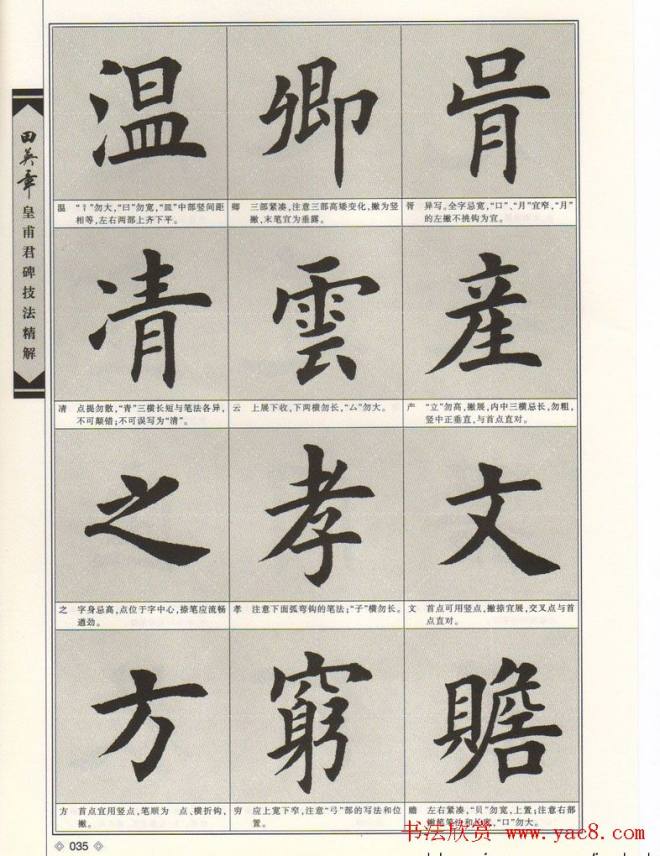 田英章
皇甫君碑技法精解
温 卿 胥
温 “氵”勿大,“曰”勿宽,“皿”中部竖间距
相等,左右两部上齐下平。
卿 三部紧凑,注意三部高矮变化,撇为竖
撇,末笔宜为垂露。
胥 异写。全字忌宽,“口”、“月”宜窄,“月”
的左撇不挑钩为宜。
凊 雲 産
清 点提勿散,“青”三横长短与笔法各异,
不可颠错;不可误写为“清”。
云 上展下收,下两横勿长,“厶”勿大。
产 “立”勿高,撇展,内中三横忌长,勿粗,
竖中正垂直,与首点直对。
之 孝 文
之 字身忌高,点位于字中心,捺笔应流畅
遒劲。
孝 注意下面弧弯钩的笔法;“子”横勿长。
文 首点可用竖点,撇捺宜展,交叉点与首
点直对。
方 窮 贍
方 首点宜用竖点,笔顺为 点、横折钩,
撇。
穷 应上宽下窄,注意“弓”部的写法和位
置。
赡 左右紧凑,“贝”勿宽,上置;注意右部
“口”勿大。
035
书法欣赏 www.yac8.com